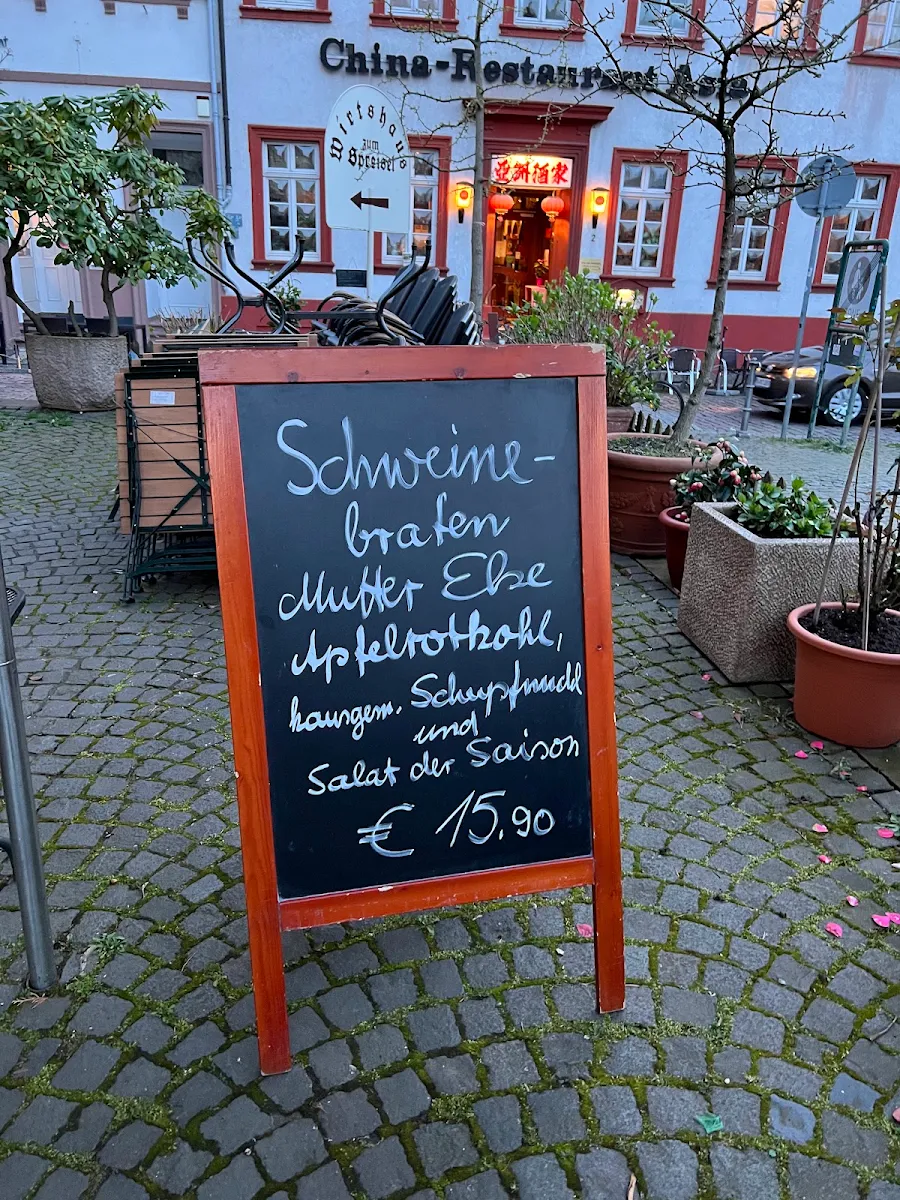 China-Restaurant Asia
Wirtshaus
zum
Spreisel
亞洲酒家
Schweine-
braten
Mutter Else
Apfelrotkohl,
hausgem. Schupfnudl
und
Salat der Saison
€ 15.90